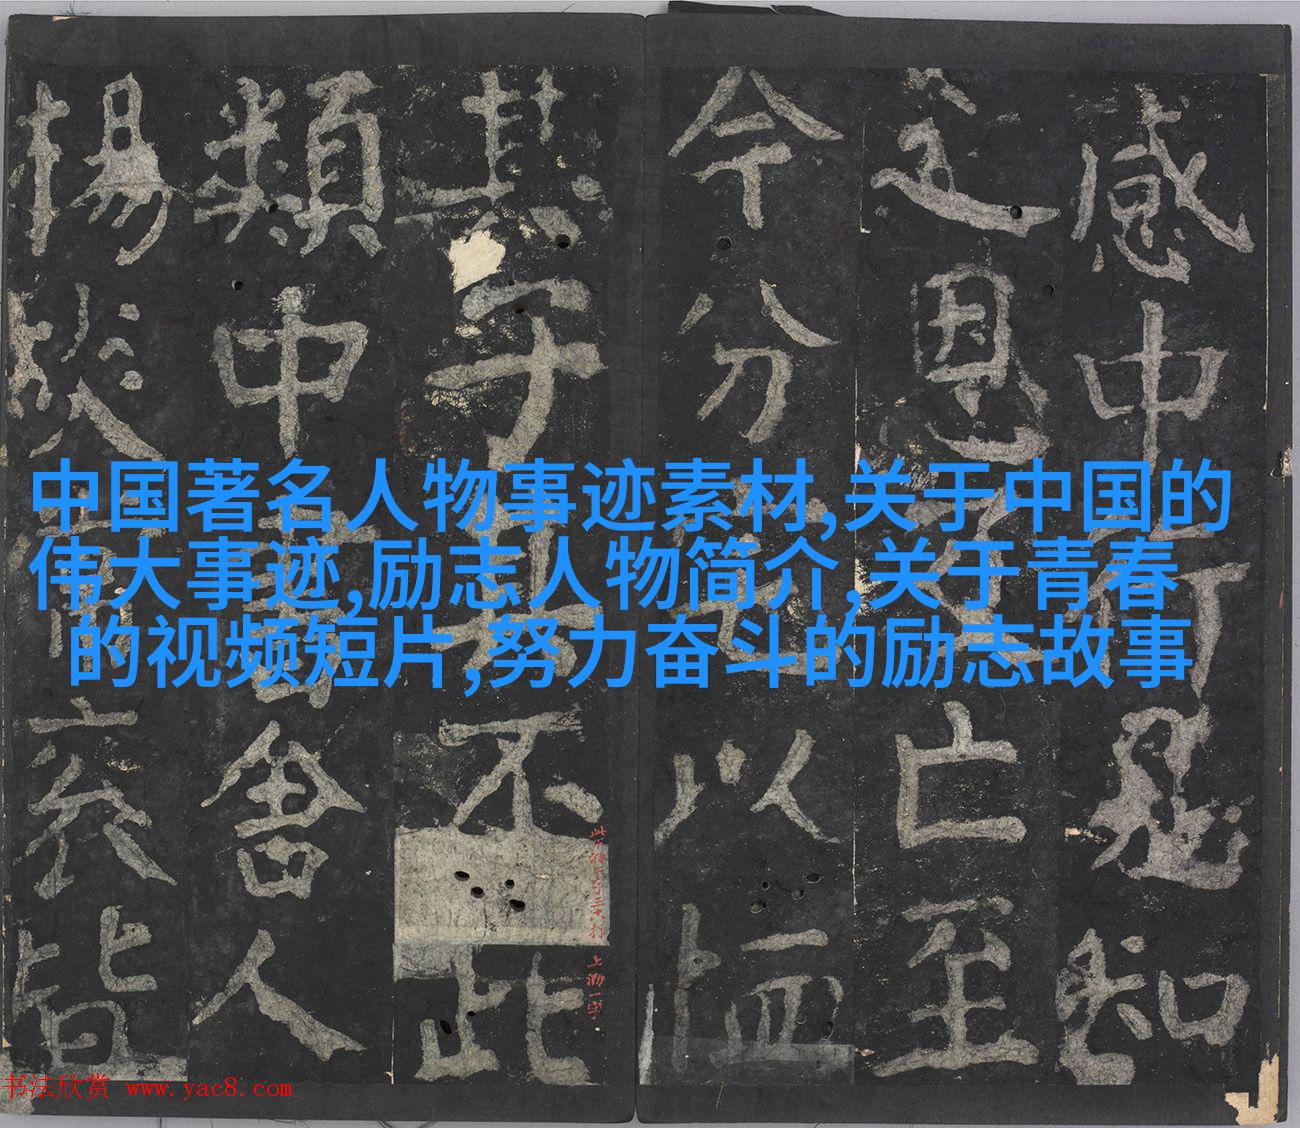 中国著名人物事迹素材,关于中国的
伟大事迹,励志人物简介,关于青春
的视频短片,努力奋斗的励志故事
感中可知
之恩亡至
今分以恤
其子不此
類中書舍人
揚皆
书法欣赏 www.yac8.com